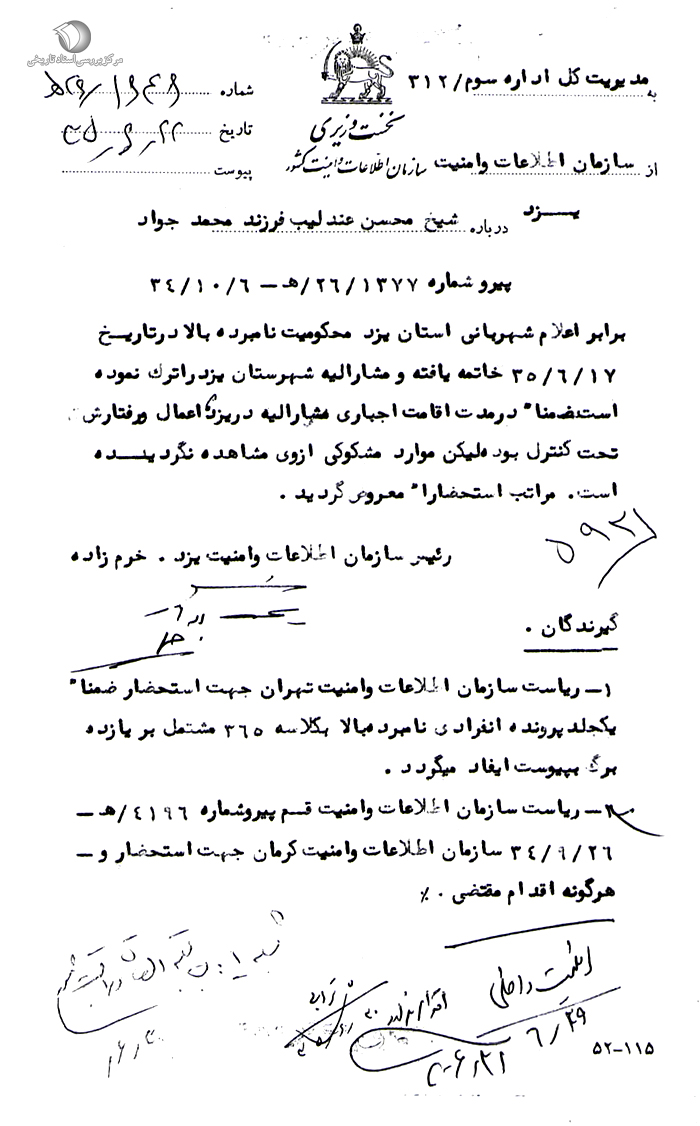 مرکز بررسی اسناد تاریخی
به مدیریت کل اداره سوم/ ۳۱۲
شماره
نخست وزیری
تاریخ
از سازمان اطلاعات وامنیت
سازمان اطلاعات و امنیت کشور
پیوست
یزد
درباره شیخ محسن عندلیب فرزند محمد جواد
پیرو شماره ۱۳۷۷/ ۲۶/هـ – ۳۴/۱۰/۶
برابر اعلام شهربانی استان یزد محکومیت نامبرده بالا درتاریخ
۳۵/۶/۱۷ خاتمه یافته و مشارالیه شهرستان یزدراترك نموده
است ضمنا" درمدت اقامت اجباری مشارالیه دریزد اعمال ورفتارش
تحت کنترل بوده لیکن موارد مشکوکی ازوی مشاهده نگردیـــده
است. مراتب استحضارا" معروض گردید .
رئیس سازمان اطلاعات وامنیت یزد . خرم زاده
گیرندگان .
۱ـ ریاست سازمان اطلاعات وامنیت تهران جهت استحضار ضمنا"
یکجلد پرونده انفرادی نامبرده بالا بکلاسه ۳۶۵ مشتمل بر یازده
برگ بپیوست ایفاد میگردد .
۲ـ ریاست سازمان اطلاعات وامنیت قم پیروشماره ۴۱۹۶/هـ –
۳۴/۹/۲۶ سازمان اطلاعات وامنیت کرمان جهت استحضار و –
هرگونه اقدام مقتضی . ٪
امنیت داخلی
۶/۲۹
۵۲-۱۱۵